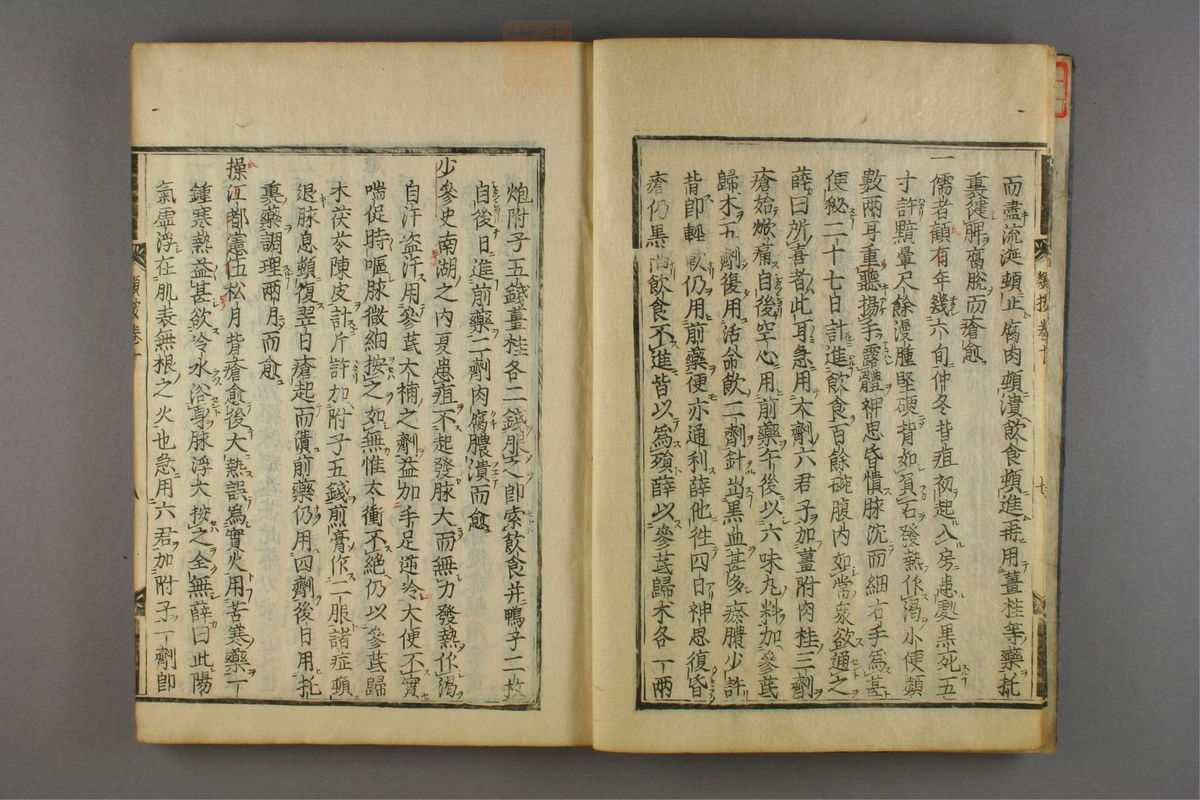 而盡流涎頓止腐肉頓潰飲食頓進再用薑桂等藥托
裏健脾腐脫而瘡愈
一儒者頗有年幾六旬仲冬背疽初起入房患處黑死五
寸許黯暈尺餘漫腫堅硬背如負石發熱作渴小便頻
數兩耳重聽揚手露體神思昏憒脉沉而細右手爲甚
便秘二十七日計進飲食百餘碗腹内如常衆欲通之
薛曰所喜者此耳急用大劑六君子加薑附肉桂三劑
瘡始焮痛自後空心用前藥午後以六味丸料加參芪
歸术五劑復用活命飲二劑針出黑血甚多瘀膿少許
背即輕軟仍用前藥便亦通利薛他徃四日神思復昏
瘡仍黑尚飲食不進皆以爲殞薛以參芪歸术各一兩
炮附子五錢薑桂各二錢服之即索飲食并鴨子二枚
自後日進前藥二劑肉腐膿潰而愈
少參史南湖之内夏患疽不起發脉大而無力發熱作渴
自汗盗汗用參芪大補之劑益加手足逆冷大便不實
喘促時嘔脉微細按之如無惟太衝不絶仍以參芪歸
术茯苓陳皮計斤許加附子五錢煎膏作二服諸症頓
退脉息頓復翌日瘡起而潰前藥仍用四劑後日用托
裏藥調理兩月而愈
操江都憲伍松月背瘡愈後大熱誤爲實火用苦寒藥一
鍾寒熱益甚欲冷水浴身脉浮大按之全無薛曰此陽
氣虛浮在肌表無根之火也急用六君加附子一劑即